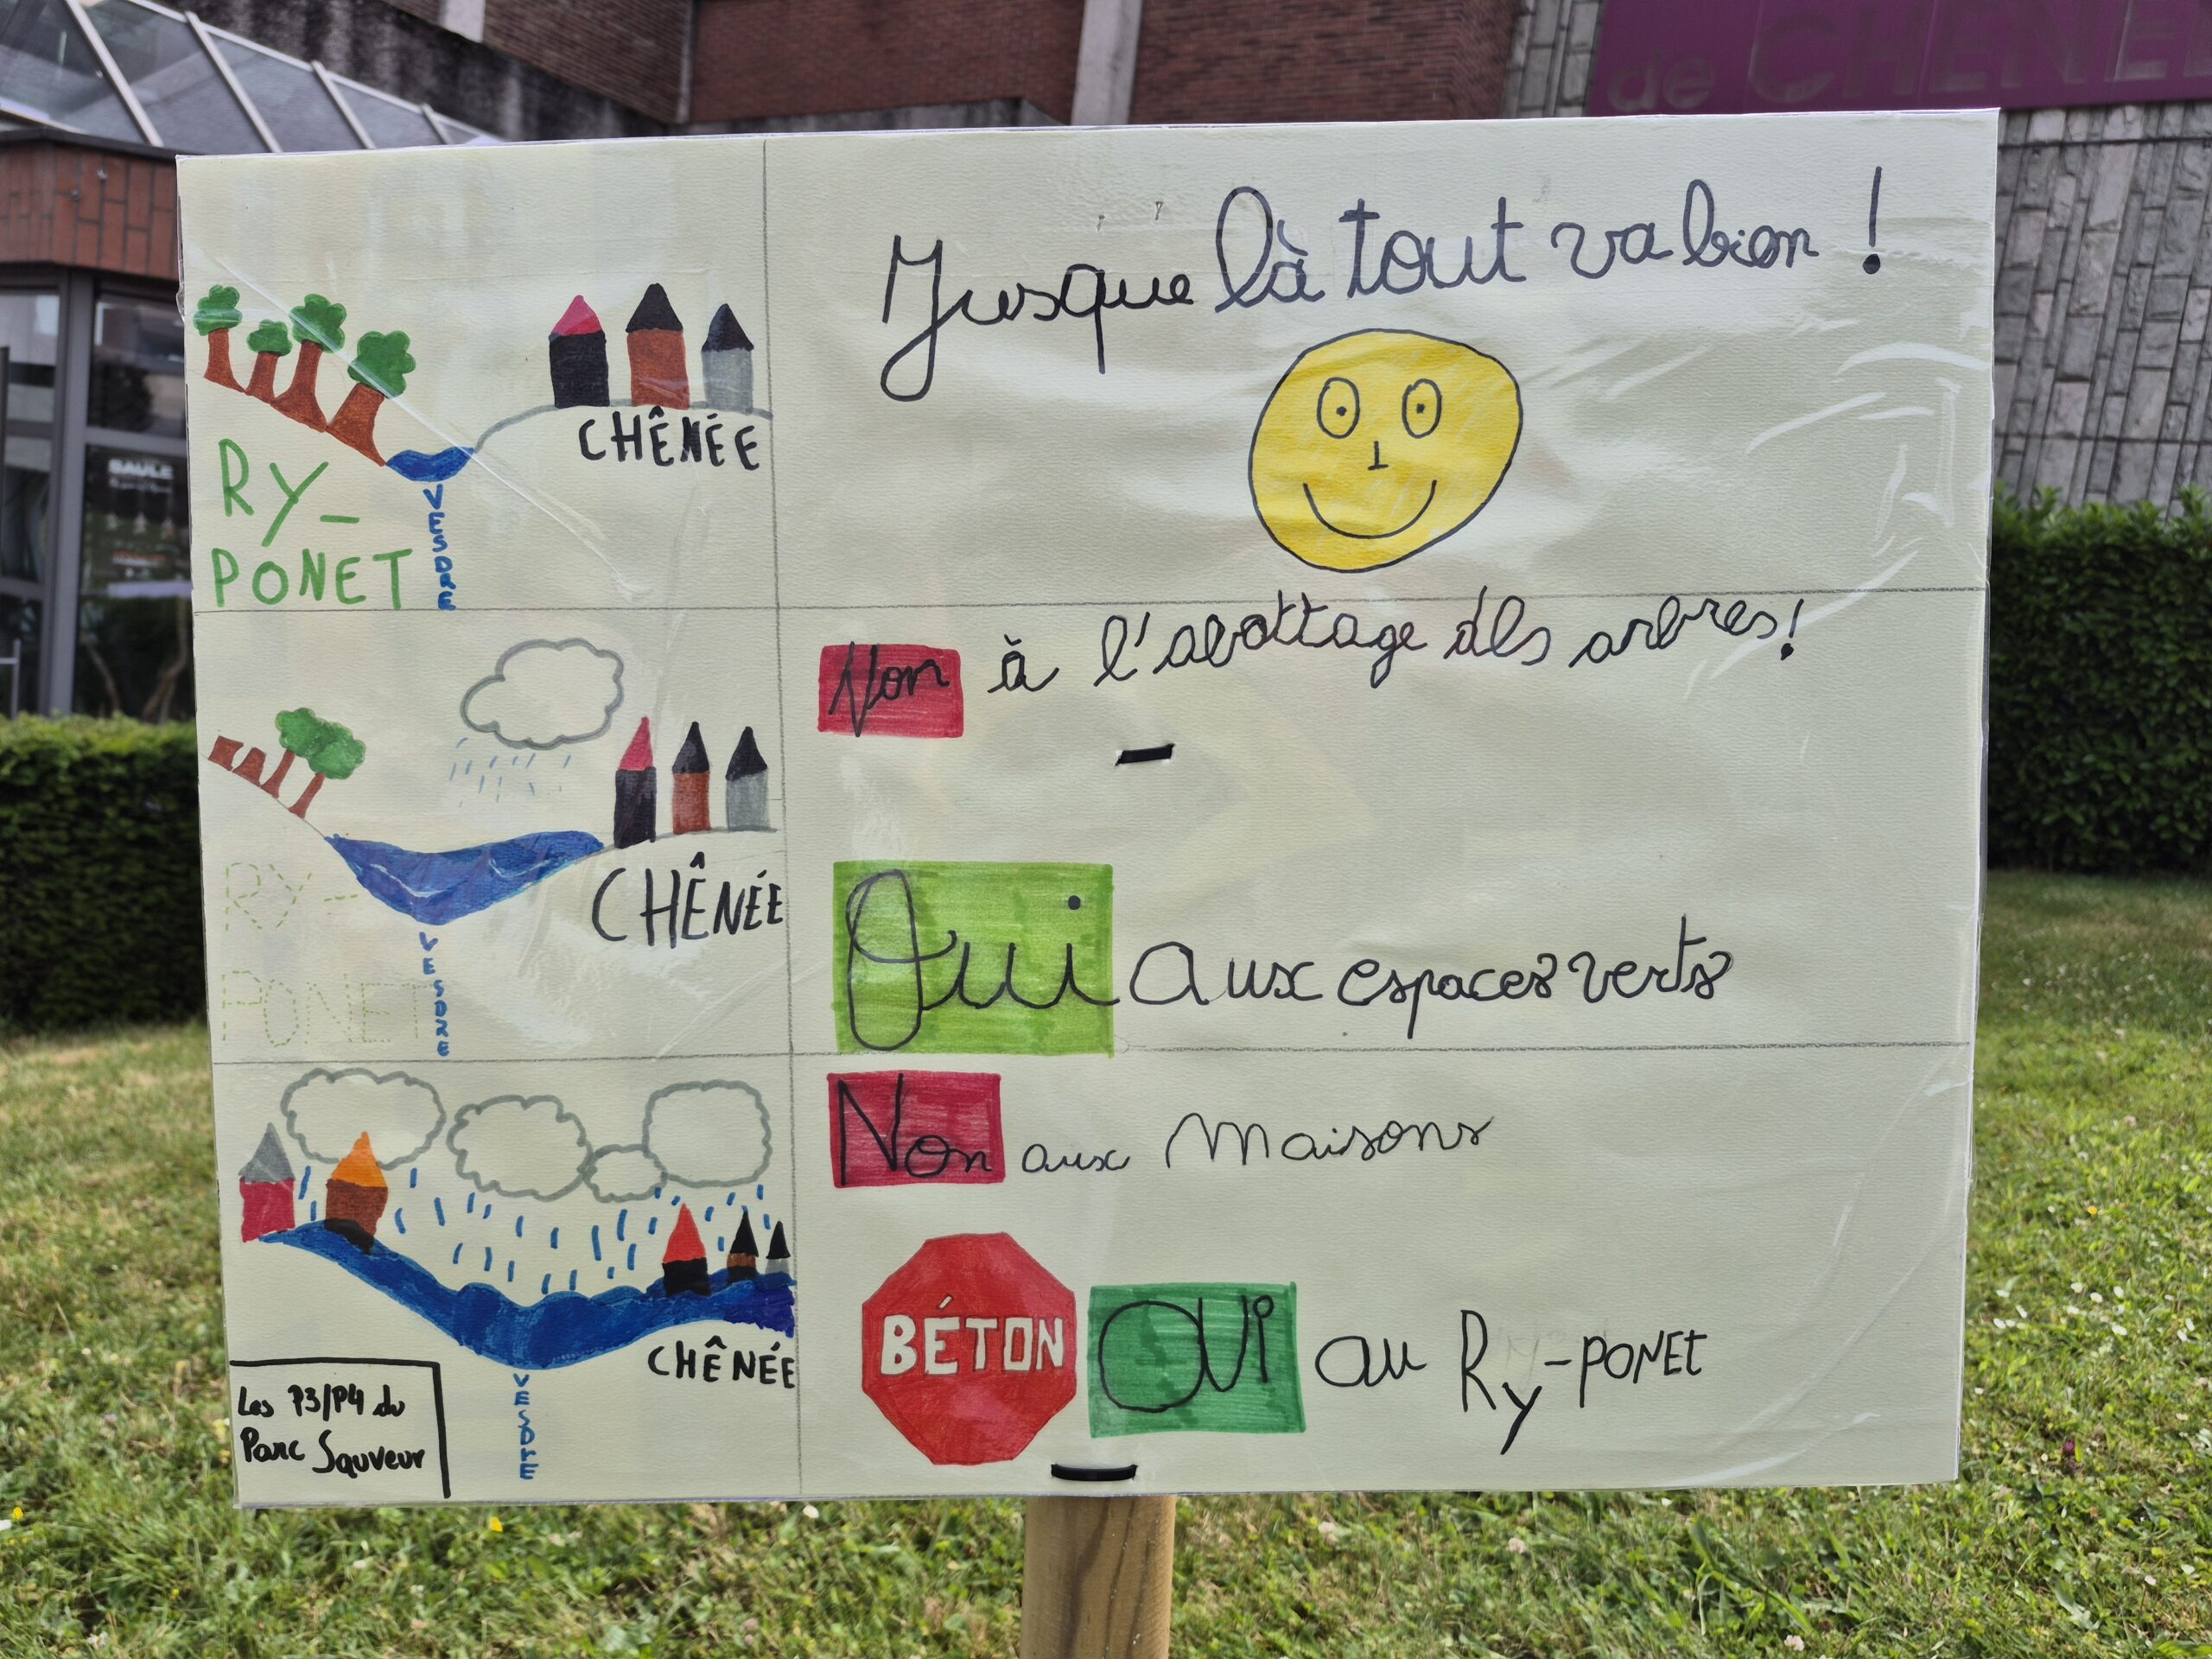 de CHÊNÉE
SAULE
Jusque là tout va bien !
CHÊNÉE
RY-
PONET
VESDRE
Non à l'abattage des arbres!
CHÊNÉE
RY-
PONET
VESDRE
Oui aux espaces verts
Non aux maisons
BÉTON OUI au Ry-PONET
CHÊNÉE
VESDRE
Les P3/P4 du
Parc Sauveur